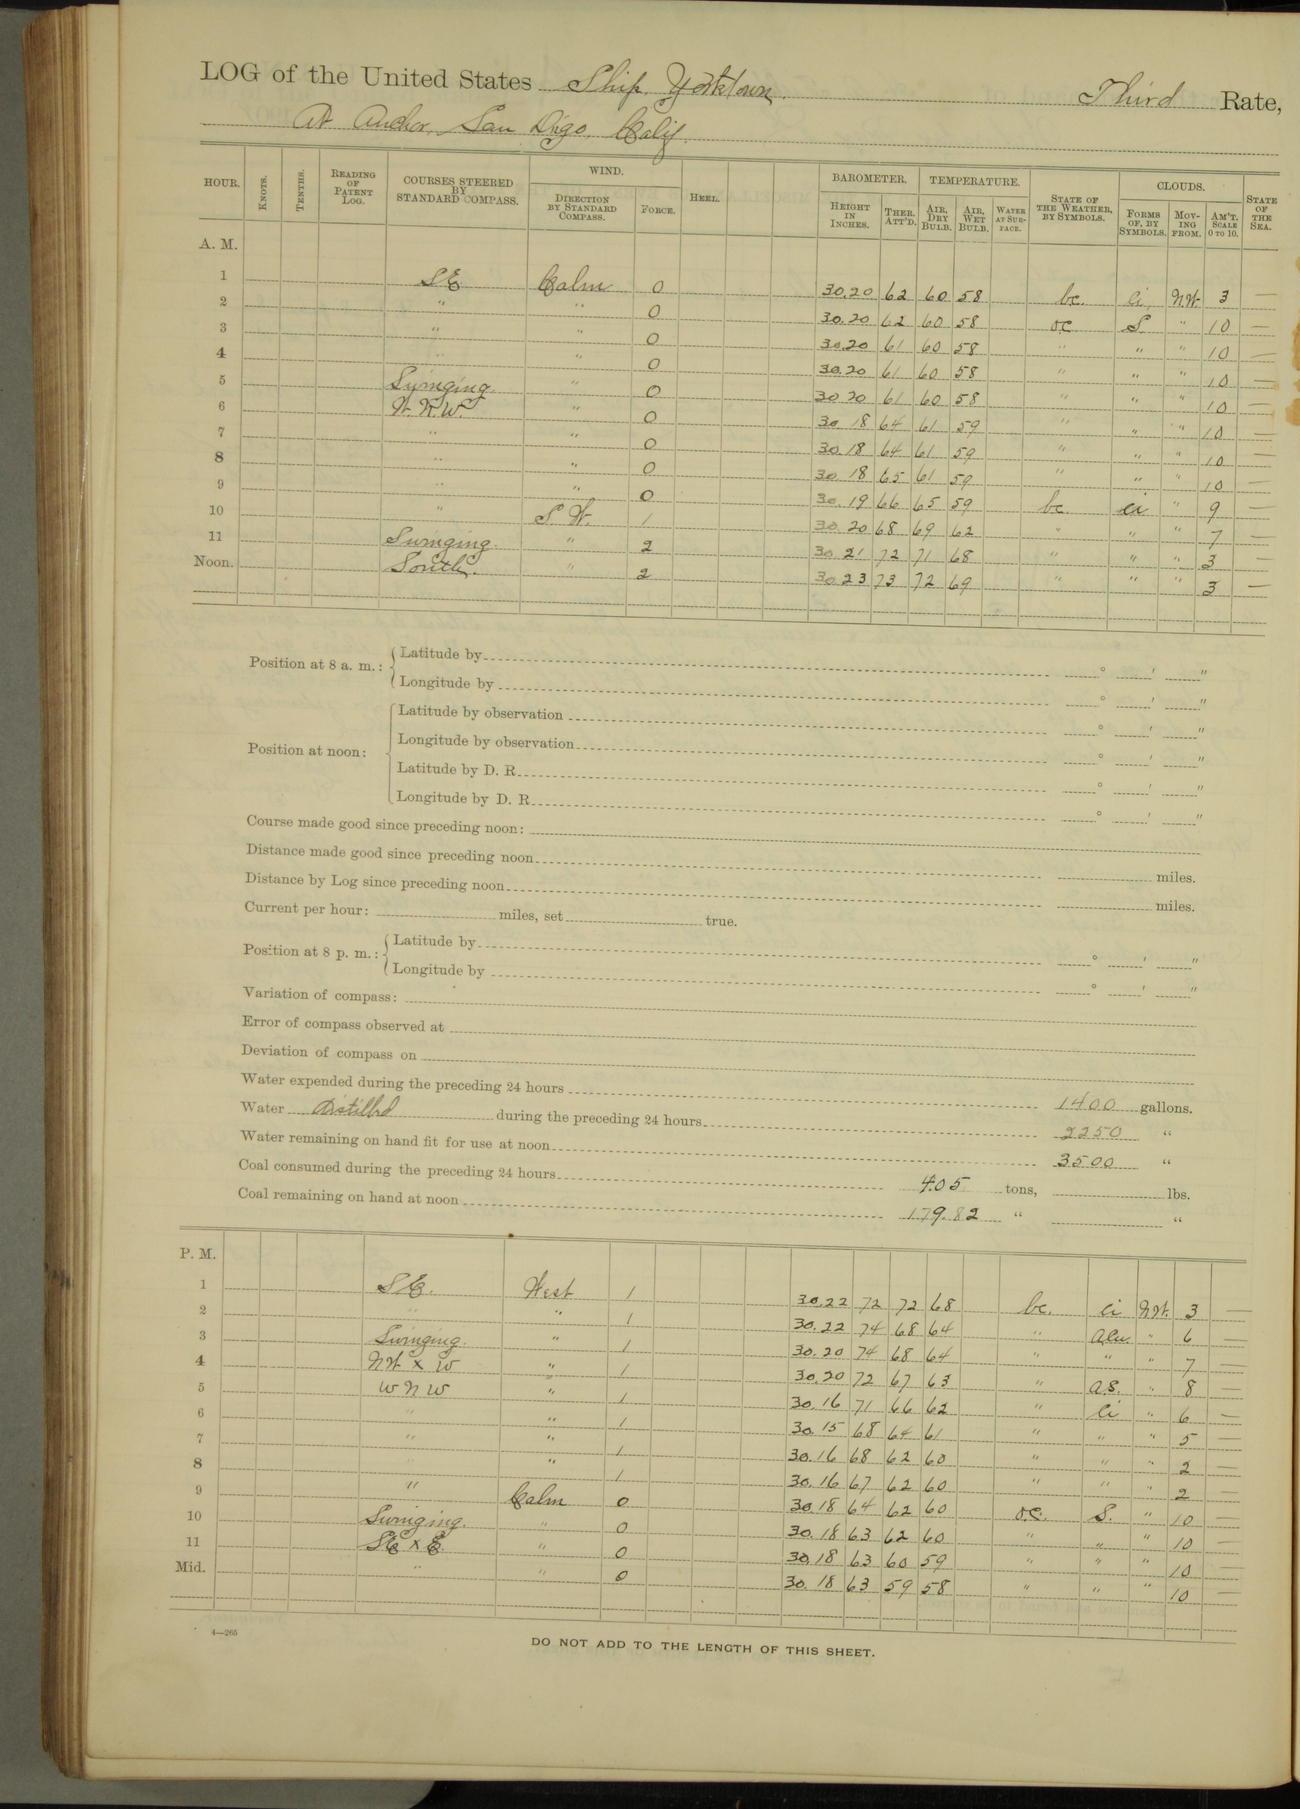 LOG of the United States Ship Yorktown. Third Rate,
At Anchor, San Digo, Calif.
HOUR. KNOTS. TENTHS. READING OF PATENT LOG. COURSES STEERED BY STANDARD COMPASS. WIND. DIRECTION BY STANDARD COMPASS. FORCE. HEEL. BAROMETER. HEIGHT IN INCHES. THER. ATT'D. TEMPERATURE. AIR, DRY BULB. AIR, WET BULB. WATER AT SURFACE. STATE OF THE WEATHER, BY SYMBOLS. CLOUDS. FORMS OF, BY SYMBOLS. MOVING FROM. AM'T. SCALE 0 TO 10. STATE OF THE SEA.
A. M.
1 SE Calm 0 30.20 62 60 58 bc. ci NW 3 —
2 " " 0 30.20 62 60 58 oc S. " 10 —
3 " " 0 30.20 61 60 58 " " " 10 —
4 " " 0 30.20 61 60 58 " " " 10 —
5 Swinging " 0 30 20 61 60 58 " " " 10 —
6 W.N.W. " 0 30 18 64 61 59 " " " 10 —
7 " " 0 30.18 64 61 59 " " " 10 —
8 " " 0 30 18 65 61 59 " " " 10 —
9 " " 0 30.19 66 65 59 bc. ci " 9 —
10 " S W. 1 30.20 68 69 62 " " " 7 —
11 Swinging. " 2 30.21 72 71 68 " " " 3 —
Noon. South. " 2 30 23 73 72 69 " " " 3 —
Position at 8 a. m.: Latitude by ° ' "
Longitude by ° ' "
Position at noon: Latitude by observation ° ' "
Longitude by observation ° ' "
Latitude by D. R. ° ' "
Longitude by D. R. ° ' "
Course made good since preceding noon:
Distance made good since preceding noon miles.
Distance by Log since preceding noon miles.
Current per hour: miles, set true.
Position at 8 p. m.: Latitude by ° ' "
Longitude by ° ' "
Variation of compass:
Error of compass observed at
Deviation of compass on
Water expended during the preceding 24 hours 1400 gallons.
Water Distilled during the preceding 24 hours 2250 "
Water remaining on hand fit for use at noon 3500 "
Coal consumed during the preceding 24 hours 4.05 tons, lbs.
Coal remaining on hand at noon 179.82 " "
P. M.
1 SE. West 1 30.22 72 72 68 bc. ci NW. 3 —
2 " " 1 30.22 74 68 64 " acu " 6 —
3 Swinging. " 1 30.20 74 68 64 " " " 7 —
4 NW x W " 1 30.20 72 67 63 " a.s. " 8 —
5 W N W " 1 30.16 71 66 62 " Ci " 6 —
6 " " 1 30.15 68 64 61 " " " 5 —
7 " " 1 30.16 68 62 60 " " " 2 —
8 " " 1 30.16 67 62 60 " " " 2 —
9 " Calm 0 30.18 64 62 60 o.c. S. " 10 —
10 Swinging. " 0 30.18 63 62 60 " " " 10 —
11 SE x E. " 0 30.18 63 60 59 " " " 10 —
Mid. " " 0 30.18 63 59 58 " " " 10 —
4—265
DO NOT ADD TO THE LENGTH OF THIS SHEET.